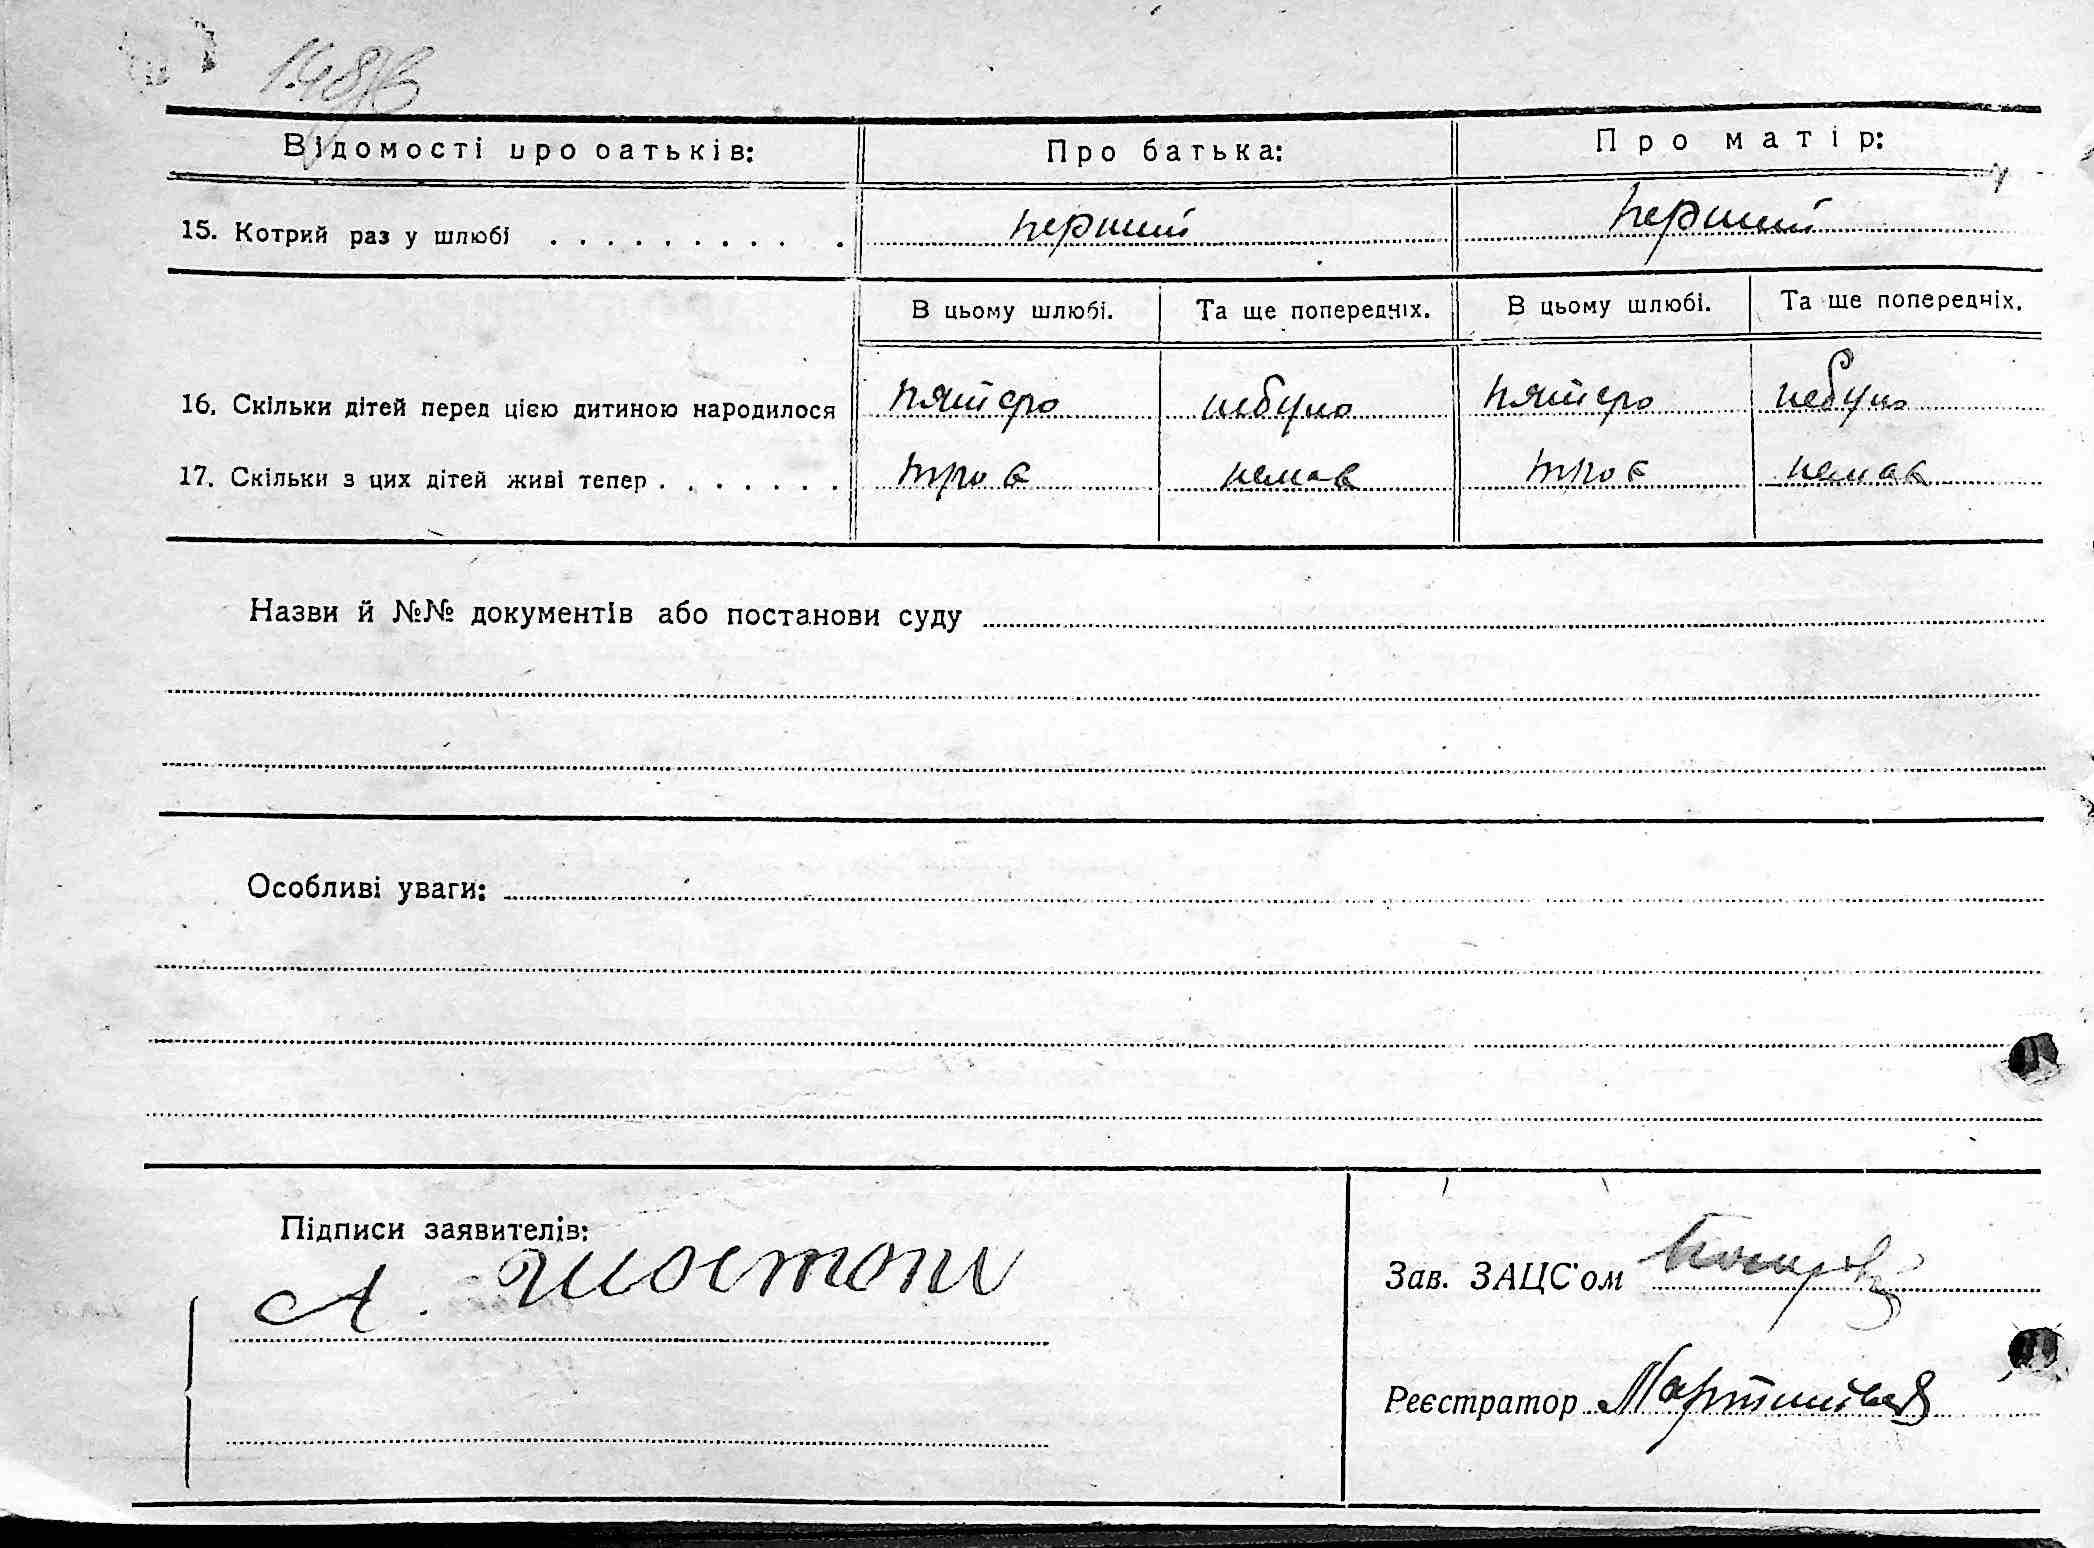 Відомості про батьків: Про батька: Про матір:
15. Котрий раз у шлюбі . . . . . . . . . . перший перший
В цьому шлюбі. Та ще попередніх. В цьому шлюбі. Та ще попередніх.
16. Скільки дітей перед цією дитиною народилося пятеро небуло пятеро небуло
17. Скільки з цих дітей живі тепер . . . . . . . троє немає троє немає
Назви й №№ документів або постанови суду
Особливі уваги:
Підписи заявителів:
А. Шостопал
Зав. ЗАЦС'ом
Реєстратор